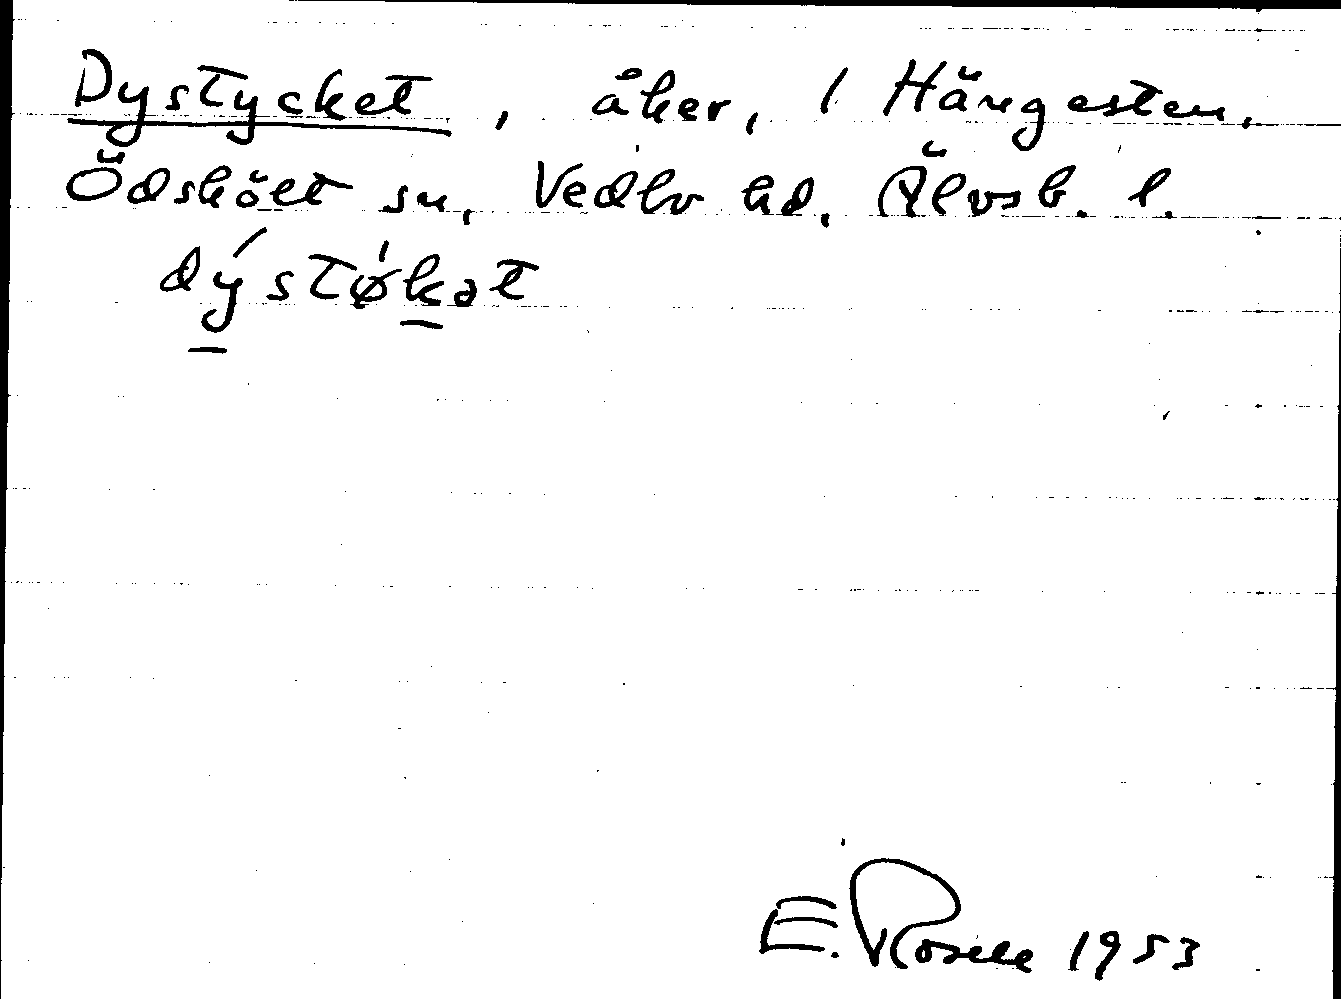 Dystycket, åker, 1 Hängesten,
Ödskölt sn, Vedbo hd, Älvsb. l.
dýstø̍kət
E. Rosell 1953